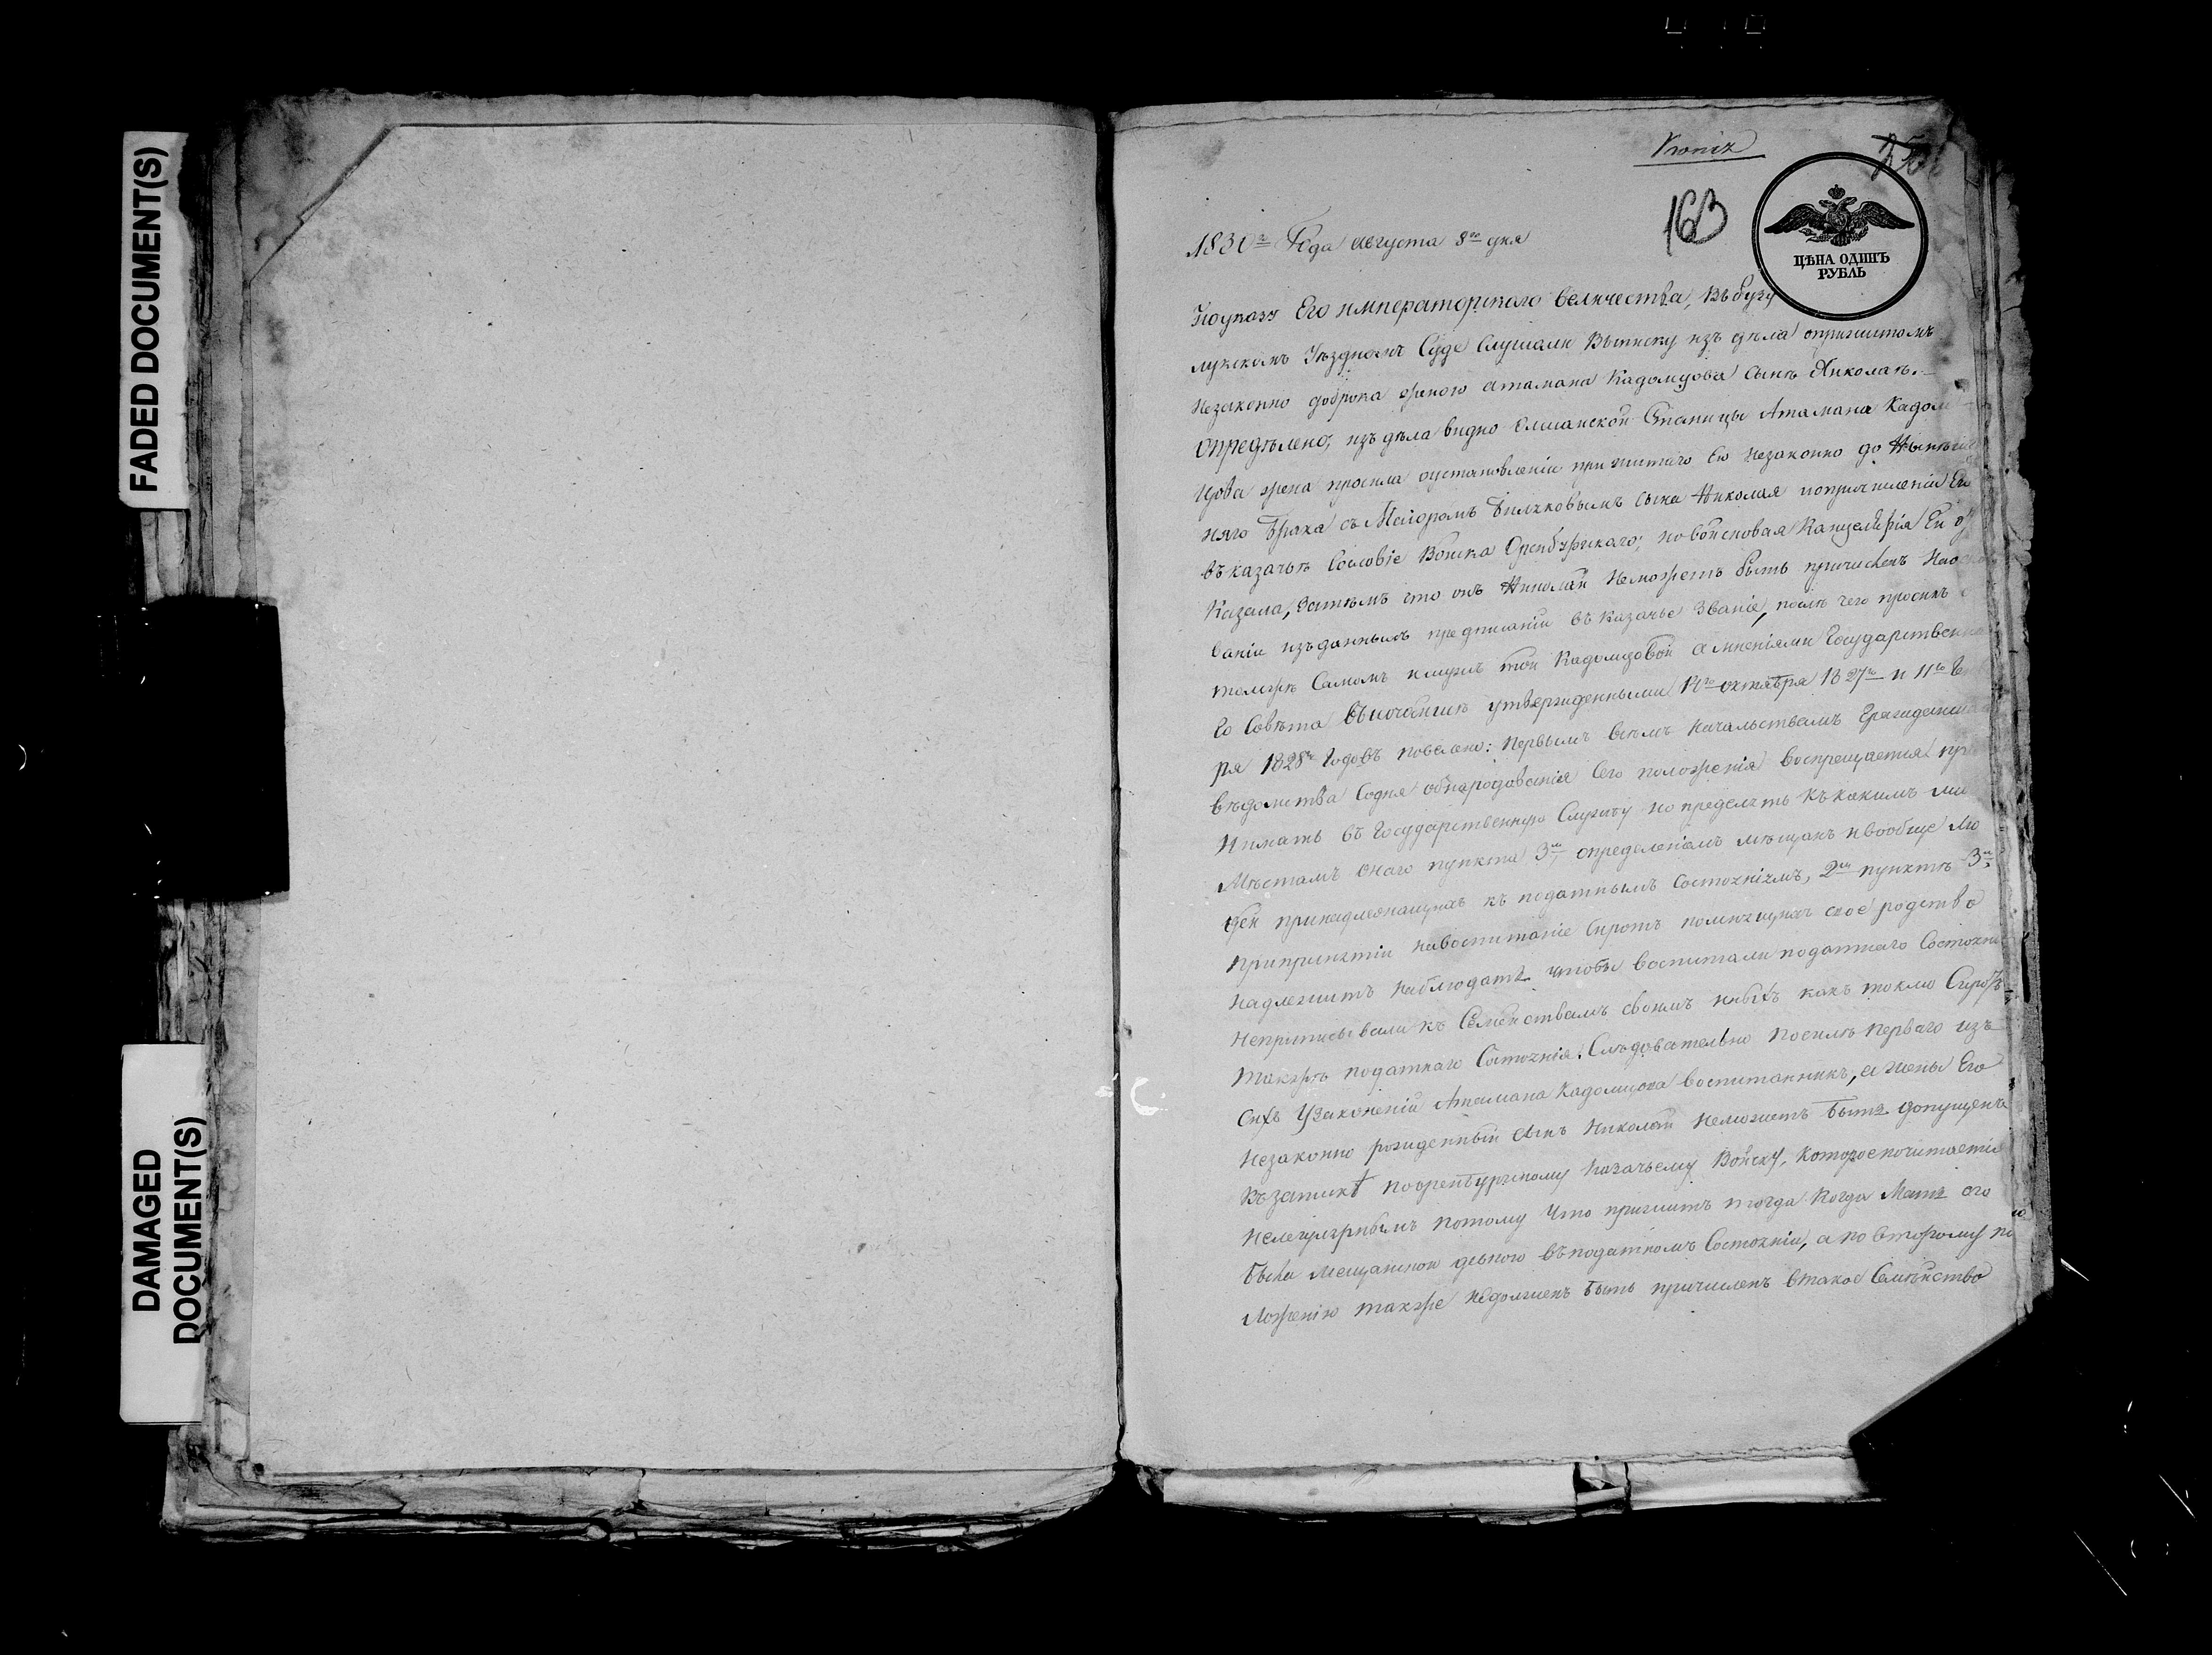 FADED DOCUMENT(S)
DAMAGED
DOCUMENT(S)
Копія
163
ЦѢНА ОДИНЪ
РУБЛЬ
1830го Года августа 8го дня
Поуказу Его императорскаго величества, въ бузу
лукскомъ Уѣздномъ Суде Слушали Выписку изъ дѣла оприжитомъ
незаконно до брака женою атамана Кадомцова сынѣ Николаѣ.
Опредѣлено, изъ дѣла видно Елшанской Станицы Атамана Кадом
цова жена просила оустановленіи прижитаго Ею незаконно до Нынѣш
няго брака съ Маіоромъ сына Николая ипричисленіи Его
въ казачье Сословіе Войска Оренбургскаго; но войсковая Канцелярія Ей от
Казала, Затѣмъ что онъ Николай Неможетъ быть причисленъ Наосно
ваніи изъданныхъ предписаніи въ казачье Званіе, послѣ чего просилъ о
томже Самомъ и мужъ той Кадомцовой а мнѣніями Государственна
го Совѣта Высочайше утвержденными 14го октября 1827го и 11го Ген
ря 1828го Годовъ повелено: первымъ всѣмъ Начальствамъ Гражданска
вѣдомства Содня обнародованія Сего положенія воспрещается при
Нимать въ Государственную Службу иопределять къкакимъ либо
Мѣстамъ Онаго пункта 3м определеніемъ мѣщанъ ивообще лю
дей принадлежащихъ къ податнымъ Состояніямъ, 2м пунктѣ 3м
припринятіи навоспитаніе Сиротъ непомнящихъ свое родство
Надлежитъ Наблюдать чтобы воспитали податнаго Состоянія
Неприписывали къ Семействамъ своимъ иныхъ какъ токмо Сиротъ
такжѣ податнаго Состоянія. Слѣдовательно посилѣ перваго изъ
Сихъ Узаконеній Атамана Кадомцова воспитанникъ, а жены Его
Незаконно рожденный сынъ Николай Неможетъ быть допущенъ
Къзапискѣ пооренбургскому казачьему Войску, котороепочитается
потому что прижитъ тогда Когда Мать его
была Мещанскою девкою въподатномъ Состояніи, а по второму по
ложенію также недолженъ быть причисленъ втакое Семѣйство